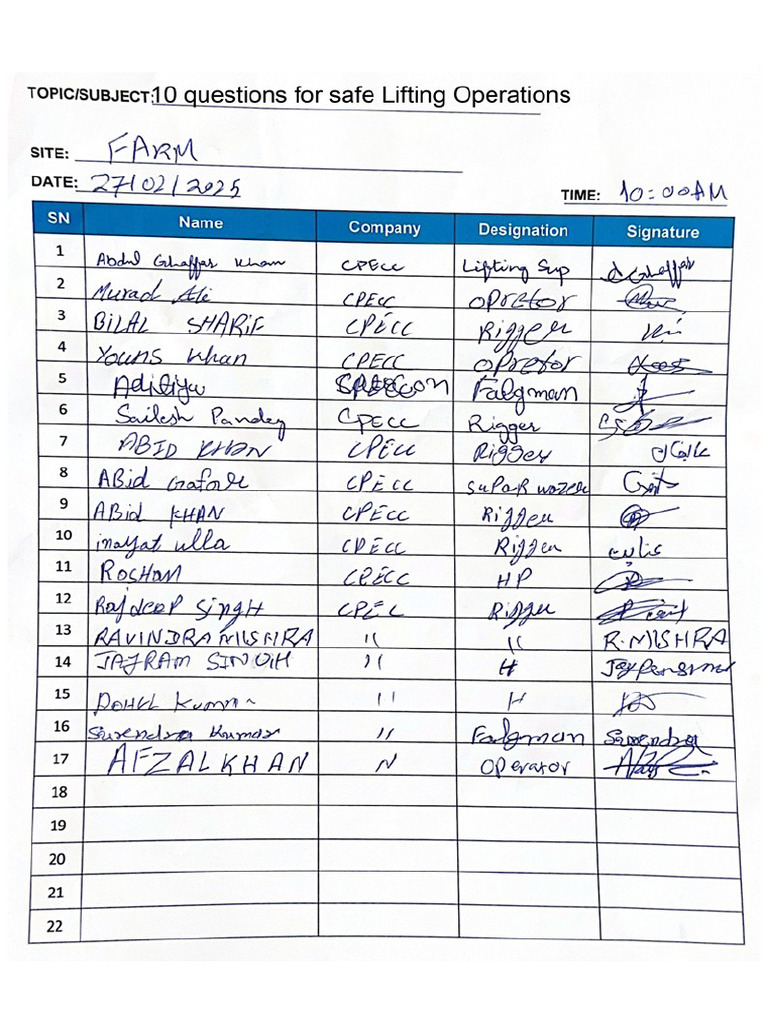 TOPIC/SUBJECT: 10 questions for safe Lifting Operations
SITE: FARM
DATE: 27/02/2025 TIME: 10:00AM
SN Name Company Designation Signature
1 Abdul Ghaffar Kham CPECC Lifting Sup Ghaffar
2 Murad Ali CPECC Opretor
3 BILAL SHARIF CPECC Rigger
4 Youns Khan CPECC Opretor
5 Aditiya Falgman
6 Sailesh Pandey CPECC Rigger
7 ABID KHAN CPECC Rigger
8 ABid CPECC
9 ABid KHAN CPECC Rigger
10 inayat ulla CPECC Rigger عنایت
11 ROSHAN CPECC HP
12 Rajdeep Singh CPEC Rigger
13 RAVINDRA MISHRA 〃 〃 R.MISHRA
14 JAJRAM 〃 H
15 〃 H
16 Surendra Kumar 〃 Falgman Surendra
17 AFZAL KHAN Operator
18
19
20
21
22